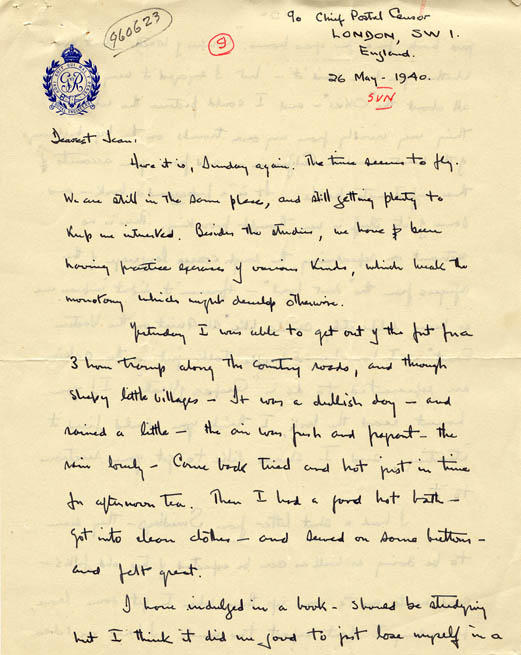 960623
9
c/o Chief Postal Censor
LONDON, SW 1.
England.
26 May - 1940.
SUN
GR
Dearest Jean,
Here it is, Sunday again. The time seems to fly.
We are still in the same place, and still getting plenty to
keep me interested. Besides the studies, we have been
having practice exercises of various kinds, which break the
monotony which might develop otherwise.
Yesterday I was able to get out of the fort for a
3 hour tramp along the country roads, and through
sleepy little villages - It was a dullish day - and
rained a little - the air was fresh and fragrant - the
rain lovely - Came back tired and hot just in time
for afternoon tea. Then I had a good hot bath -
Got into clean clothes - and sewed on some buttons -
and felt great.
I have indulged in a book - should be studying
but I think it did me good to just lose myself in a